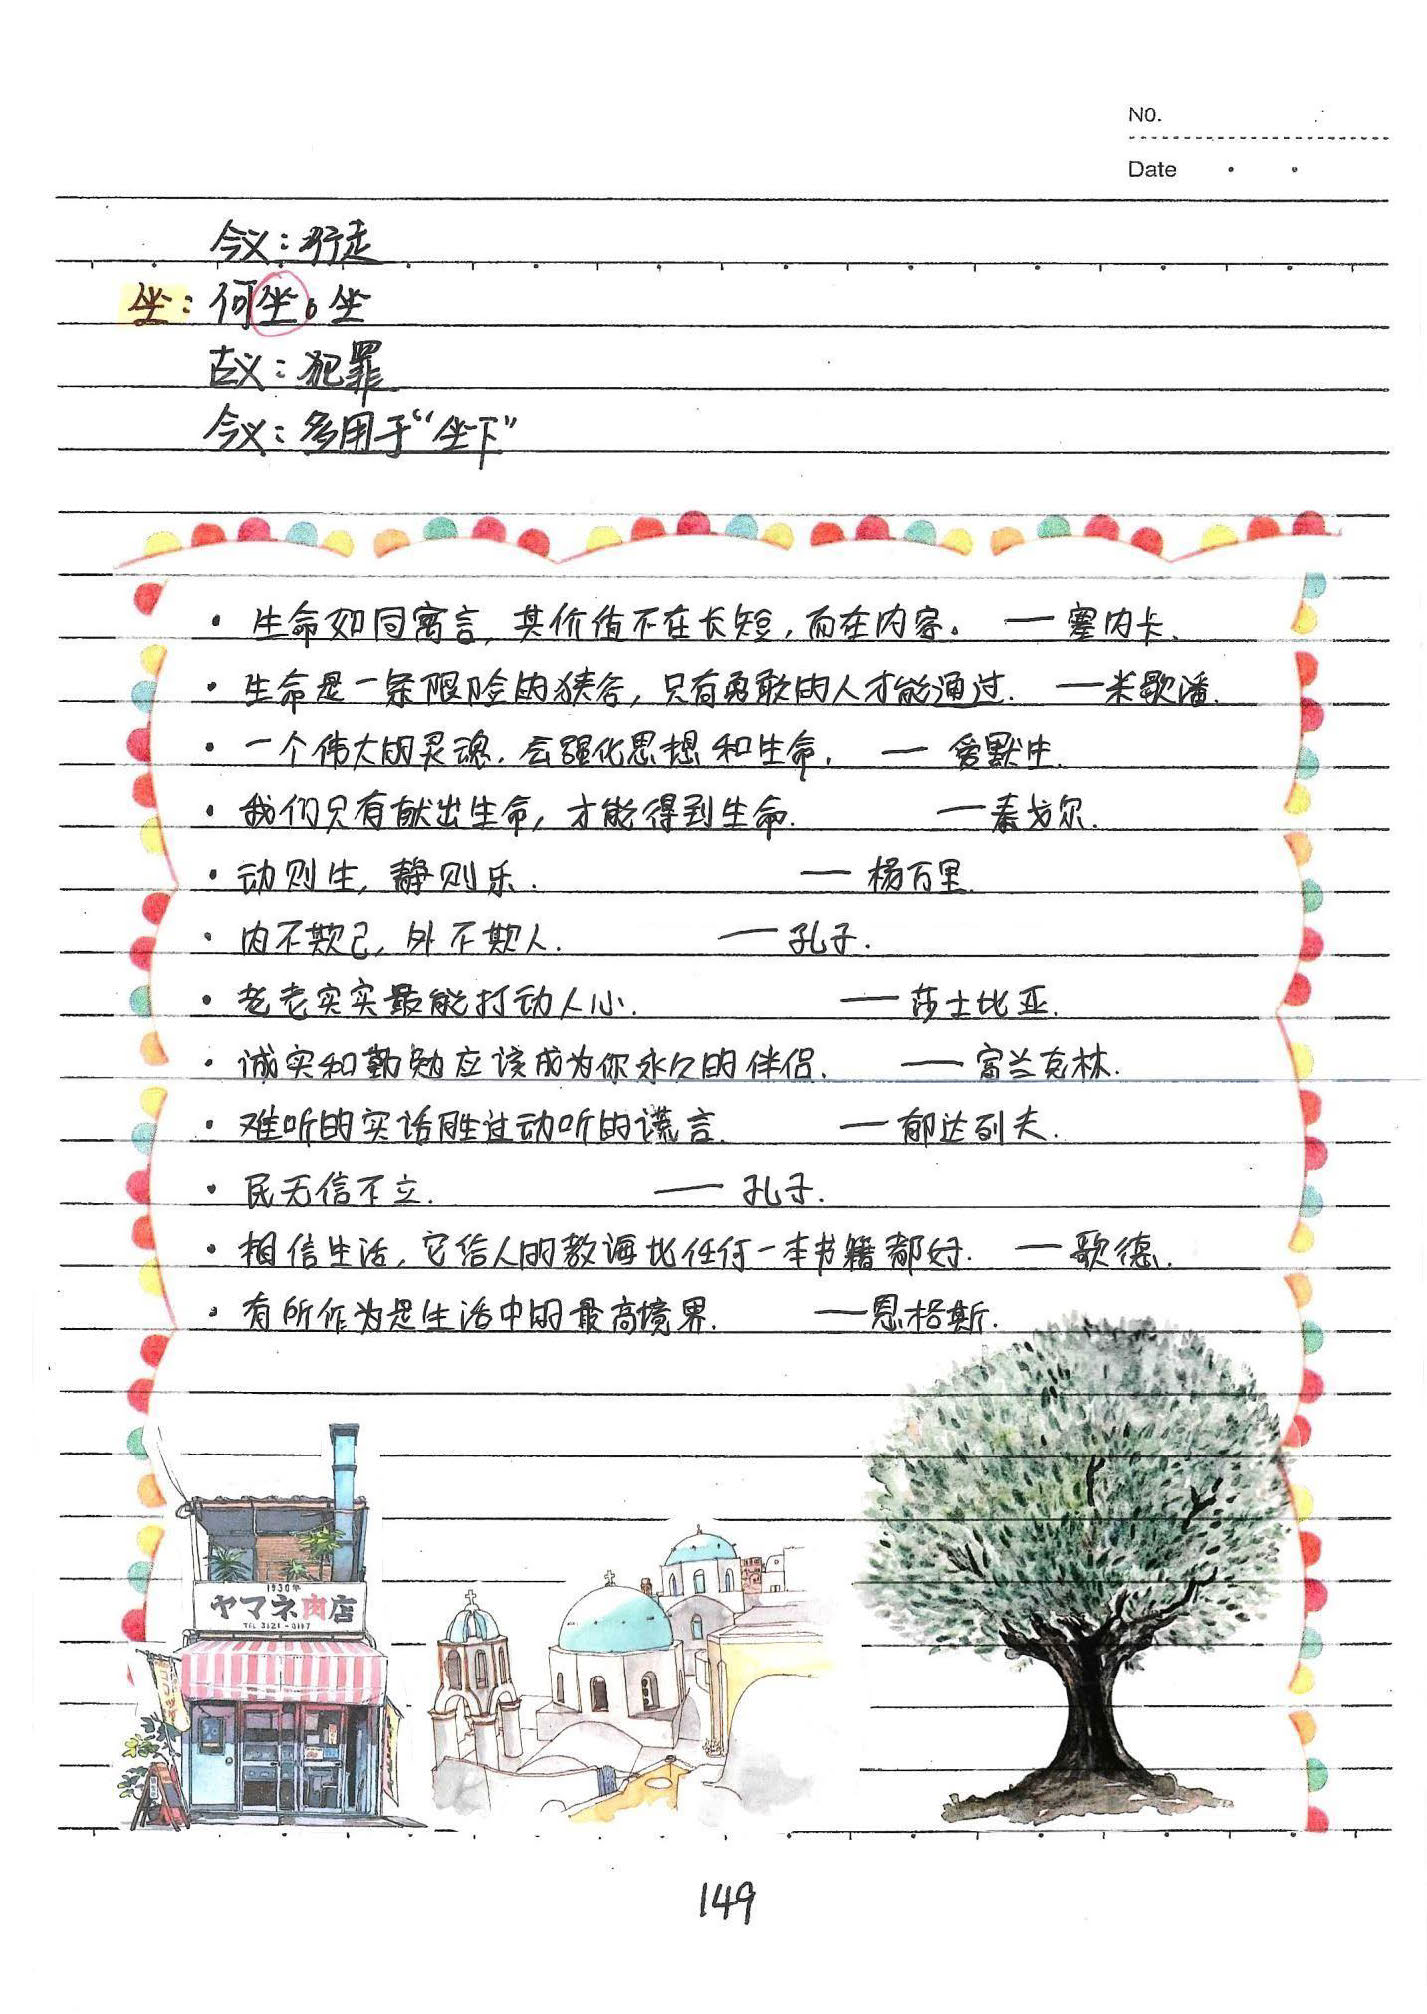 No.
Date
今义：行走
坐：何坐。坐
古义：犯罪
今义：多用于“坐下”
· 生命如同寓言，其价值不在长短，而在内容。 —塞内卡.
· 生命是一条艰险的狭谷，只有勇敢的人才能通过. —米歇潘.
· 一个伟大的灵魂，会强化思想和生命. — 爱默生.
· 我们只有献出生命，才能得到生命. —泰戈尔.
· 动则生，静则乐. — 杨万里.
· 内不欺己，外不欺人. —孔子.
· 老老实实最能打动人心. —莎士比亚.
· 诚实和勤勉应该成为你永久的伴侣. —富兰克林.
· 难听的实话胜过动听的谎言. —郁达列夫.
· 民无信不立. — 孔子.
· 相信生活，它给人的教诲比任何一本书籍都好. —歌德.
· 有所作为是生活中的最高境界. —恩格斯.
1930年
ヤマネ肉店
149